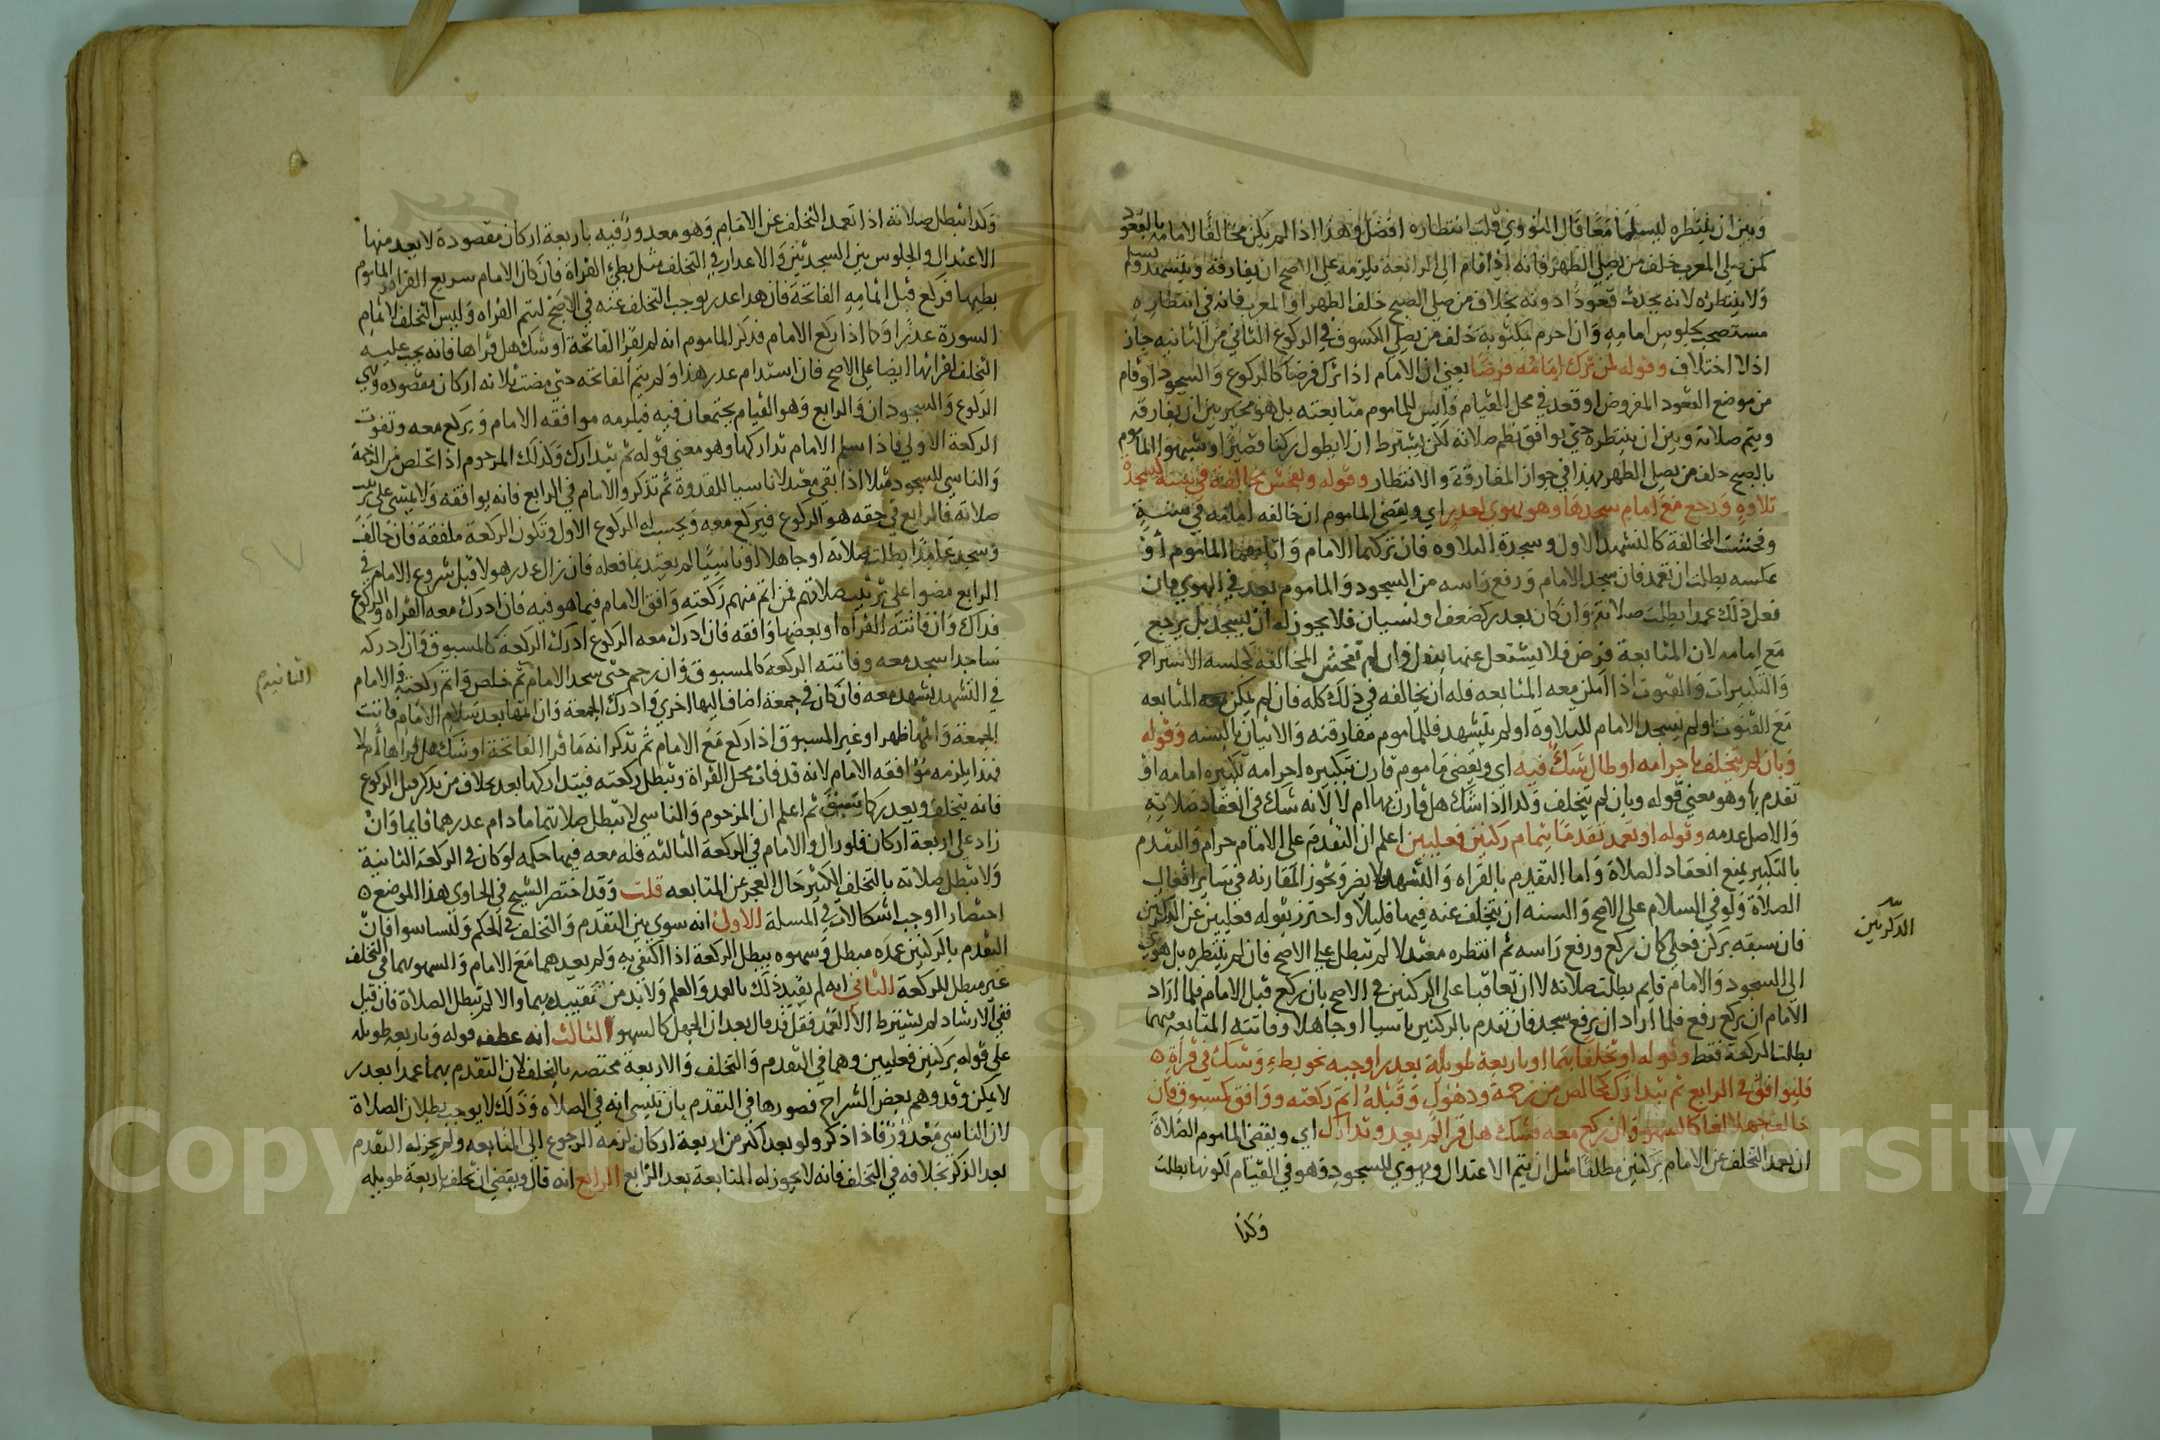 وبين ان ينتظره ليسلما معا قال النووي قلت انتظاره افضل وهذا اذا لم يكن مخالفا لامامه بالقعود
كمن صلى المغرب خلف من يصلي الظهر فانه اذا قام الى الرابعة يلزمه على الاصح ان يفارقه ويتشهد ويسلم
ولا ينتظره لانه يحدث قعودا دونه بخلاف من صلى الصبح خلف الظهر او المغرب فانه في انتظاره
مستصحب جلوس امامه وان احرم بمكتوبة خلف من يصلي الكسوف في الركوع الثاني من الثانية جاز
اذ لا اختلاف وقوله لمن ترك امامه فرضا يعني ان الامام اذا ترك فرضا كالركوع والسجود او قام
من موضع القعود المفروض او قعد في محل القيام فليس للماموم متابعته بل هو مخير بين ان يفارقه
ويتم صلاته وبين ان ينتظره حتى يوافق نظم صلاته لكن يشترط ان لا يطول ركنا قصيرا
بالصبح خلف من يصلي الظهر بهذا في جواز المفارقة والانتظار وقوله وبفحش مخالفة في سنة كسجدة
تلاوه ورجع مع امام سجدها وهو يهوي لعذر اي ويقضي الماموم ان خالفه امامه في سنة
وفحشت المخالفة كالتشهد الاول وسجدة التلاوه فان تركهما الامام واتا بهما الماموم او
عكسه بطلت ان تعمد فان سجد الامام ورفع راسه من السجود والماموم بعد في الهوي فان
فعل ذلك عمدا بطلت صلاته وان كان بعذر كضعف او نسيان فلا يجوز له ان يسجد بل يرجع
مع امامه لان المتابعة فرض فلا يشتغل عنها بنفل وان لم تفحش المخالفة كجلسة الاستراحة
والتكبيرات والقنوت اذا امكن معه المتابعه فله ان يخالفه في ذلك كله فان لم يمكن معه المتابعه
مع القنوت او لم يسجد الامام للتلاوة او لم يتشهد فللماموم مفارقته والاتيان بالسنه وقوله
وبان لم يتخلف باحرامه او طال شك فيه اي ويقضي ماموم قارن بتكبيره احرامه تكبيره امامه او
تقدم بها وهو معنى قوله وبان لم يتخلف وكذا اذا شك هل قارن بها ام لا لانه شك في انعقاد صلاته
والاصل عدمه وقوله او تعمد تقدما بتمام ركنين فعليين اعلم ان التقدم على الامام حرام والتقدم
بالتكبير يمنع انعقاد الصلاة واما التقدم بالقراه والتشهد لا يضر وتجوز المقارنه في سائر افعال
الصلاة ولو في السلام على الاصح والسنه ان يتخلف عنه فيها قليلا واحترز بقوله فعليين عن الذكريين
الذكريين
فان سبقه بركن فعلي كان يركع ورفع راسه ثم انتظره معتدلا لم تبطل على الاصح فان لم ينتظره بل هوي
الى السجود والامام قايم بطلت صلاته لا ان تعاقبا على الركنين في الاصح بان يركع قبل الامام فلما اراد
الامام ان يركع رفع فلما اراد ان يرفع سجد فان تقدم بالركنين ناسيا او جاهلا وفاتته المتابعه فيهما
بطلت الركعة فقط وقوله او تخلفا بهما او باربعة طويلة بعذر اوجبه نحو بطء وشك في قراة
فليوافق في الرابع ثم يتدارك كخالص من زحمة وذهول وقبله اتم ركعته ووافق كمسبوق فان
خالف جهلا لغا كالسهو وان ركع معه فشك هل قرا لم يعد وتدارك اي ويقضي الماموم الصلاة
ان تعمد التخلف عن الامام بركنين مطلقا مثل ان يتم الاعتدال ويهوي للسجود وهو في القيام لكونها بطلت
وكذا
وكذا تبطل صلاته اذا تعمد التخلف عن الامام وهو معذور فيه باربعة اركان مقصودة لا يعد منها
الاعتدال والجلوس بين السجدتين والاعذار في التخلف مثل بطئ القراة فان كان الامام سريع القراه والماموم
بطيها فركع قبل اتمامه الفاتحة فان هذا عذر يوجب التخلف عنه في الاصح ليتم القراه وليس التخلف لاتمام
السورة عذرا وكذا اذا ركع الامام فذكر الماموم انه لم يقرا الفاتحة او شك هل قراها فانه يجب عليه
التخلف لقرائها ايضا على الاصح فان استدام عذر هذا ولم يتم الفاتحه حتى مضت ثلاثه اركان مقصوده وهي
الركوع والسجودان والرابع وهو القيام يجتمعان فيه فيلزمه موافقه الامام ويركع معه وتفوت
الركعة الاولى فاذا سلم الامام تداركها وهو معنى قوله ثم يتدارك وكذلك المزحوم اذا تخلص من الزحمة
والناسي للسجود مثلا اذا بقي معتدلا ناسيا للقدوة ثم تذكر والامام في الرابع فانه يوافقه ولا يمشي على ترتيب
صلاته فالرابع في حقه هو الركوع فيركع معه ويحسب له الركوع الاول وتكون الركعة ملفقة فان خالف
وسجد عامدا بطلت صلاته او جاهلا او ناسيا لم يعتد بما فعله فان زال عذر هولا قبل شروع الامام في
الرابع مضوا على ترتيب صلاتهم فمن اتم منهم ركعته وافق الامام فيما هو فيه فان ادرك معه القراه والركوع
فذاك وان فاتته القراه او بعضها وافقه فان ادرك معه الركوع ادرك الركعة كالمسبوق وان ادركه
ساجدا سجد معه وفاتته الركعة كالمسبوق وان زحم حتى سجد الامام ثم خلص واتم ركعته والامام
في التشهد يشهد معه فان كان في جمعة اضاف اليها اخرى وادرك الجمعة وان اتمها بعد سلام الامام فاتت
الجمعة واتمها ظهرا وغير المسبوق اذا ركع مع الامام ثم تذكر انه ما قرا الفاتحة او شك هل قراها ام لا
فهذا يلزمه موافقه الامام لانه قد فات محل القراة وتبطل ركعته فيتداركها بعد بخلاف من تذكر قبل الركوع
فانه يتخلف ويعذر كما سبق ثم اعلم ان المزحوم والناسي لا تبطل صلاتهما ما دام عذرهما قايما وان
زاد على اربعة اركان فلو زال والامام في الركعة الثالثه فله معه فيها حكمه لو كان في الركعة الثانية
ولا تبطل صلاته بالتخلف الكثير حال العجز عن المتابعه قلت وقد اختصر الشيخ في الحاوي هذا الموضع
اختصارا اوجب اشكالات في المسلة الاولى انه سوى بين التقدم والتخلف في الحكم وليسا سوا فان
التقدم بالركنين عمده مبطل وسهوه يبطل الركعة اذا اكتفى به ولم يعدهما مع الامام والسهو بهما في التخلف
غير مبطل للركعة الثاني انه لم يقيد ذلك بالعمد والعلم ولا بد من تقييده بهما والا لم تبطل الصلاة فان قيل
ففي الارشاد لم يشترط الا التعمد فقل قد قال بعد ان الجهل كالسهو الثالث انه عطف قوله وباربعه طويله
على قوله بركنين فعليين وهما في التقدم والتخلف والاربعة مختصه بالتخلف لان التقدم بهما عمدا بعذر
لا يمكن وقد وهم بعض الشراح فصورها في التقدم بان نسي انه في الصلاه وذلك لا يوجب بطلان الصلاة
لان الناسي معذور فاذا ذكر ولو بعد اكثر من اربعة اركان لزمه الرجوع الى المتابعه ولم يجز له التقدم
بعد الذكر بخلافه في التخلف فانه لا يجوز له المتابعة بعد الرابع الرابع انه قال ويقضي ان تخلف باربعة طويله
Copyright © King Saud University